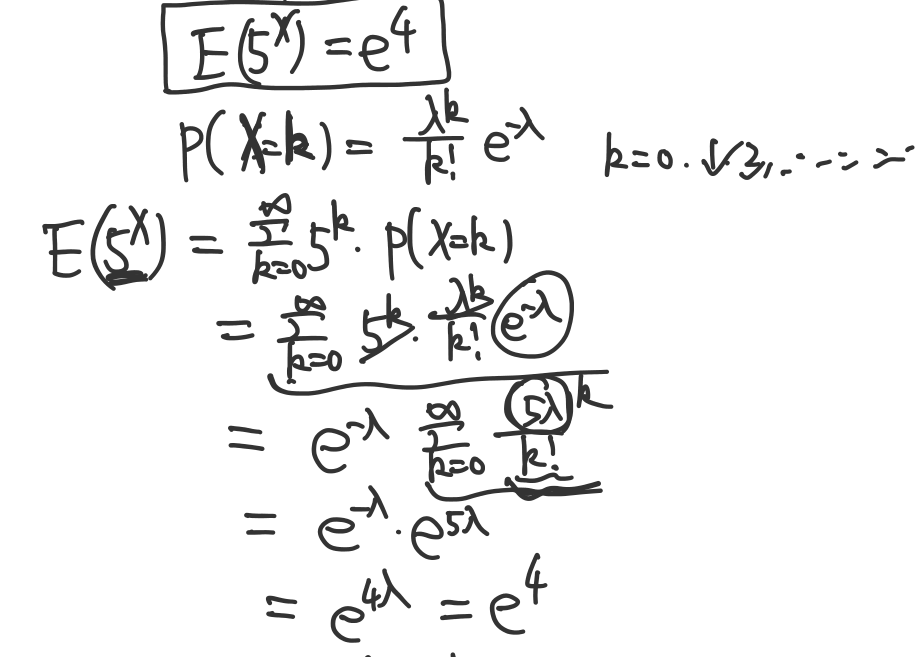 E(5^X) = e^4
P(X=k) = λ^k/k! e^{-λ} k=0.1.2,.......
E(5^X) = ∑_{k=0}^{∞} 5^k · P(X=k)
= ∑_{k=0}^{∞} 5^k · λ^k/k! e^{-λ}
= e^{-λ} ∑_{k=0}^{∞} (5λ)^k/k!
= e^{-λ} · e^{5λ}
= e^{4λ} = e^4